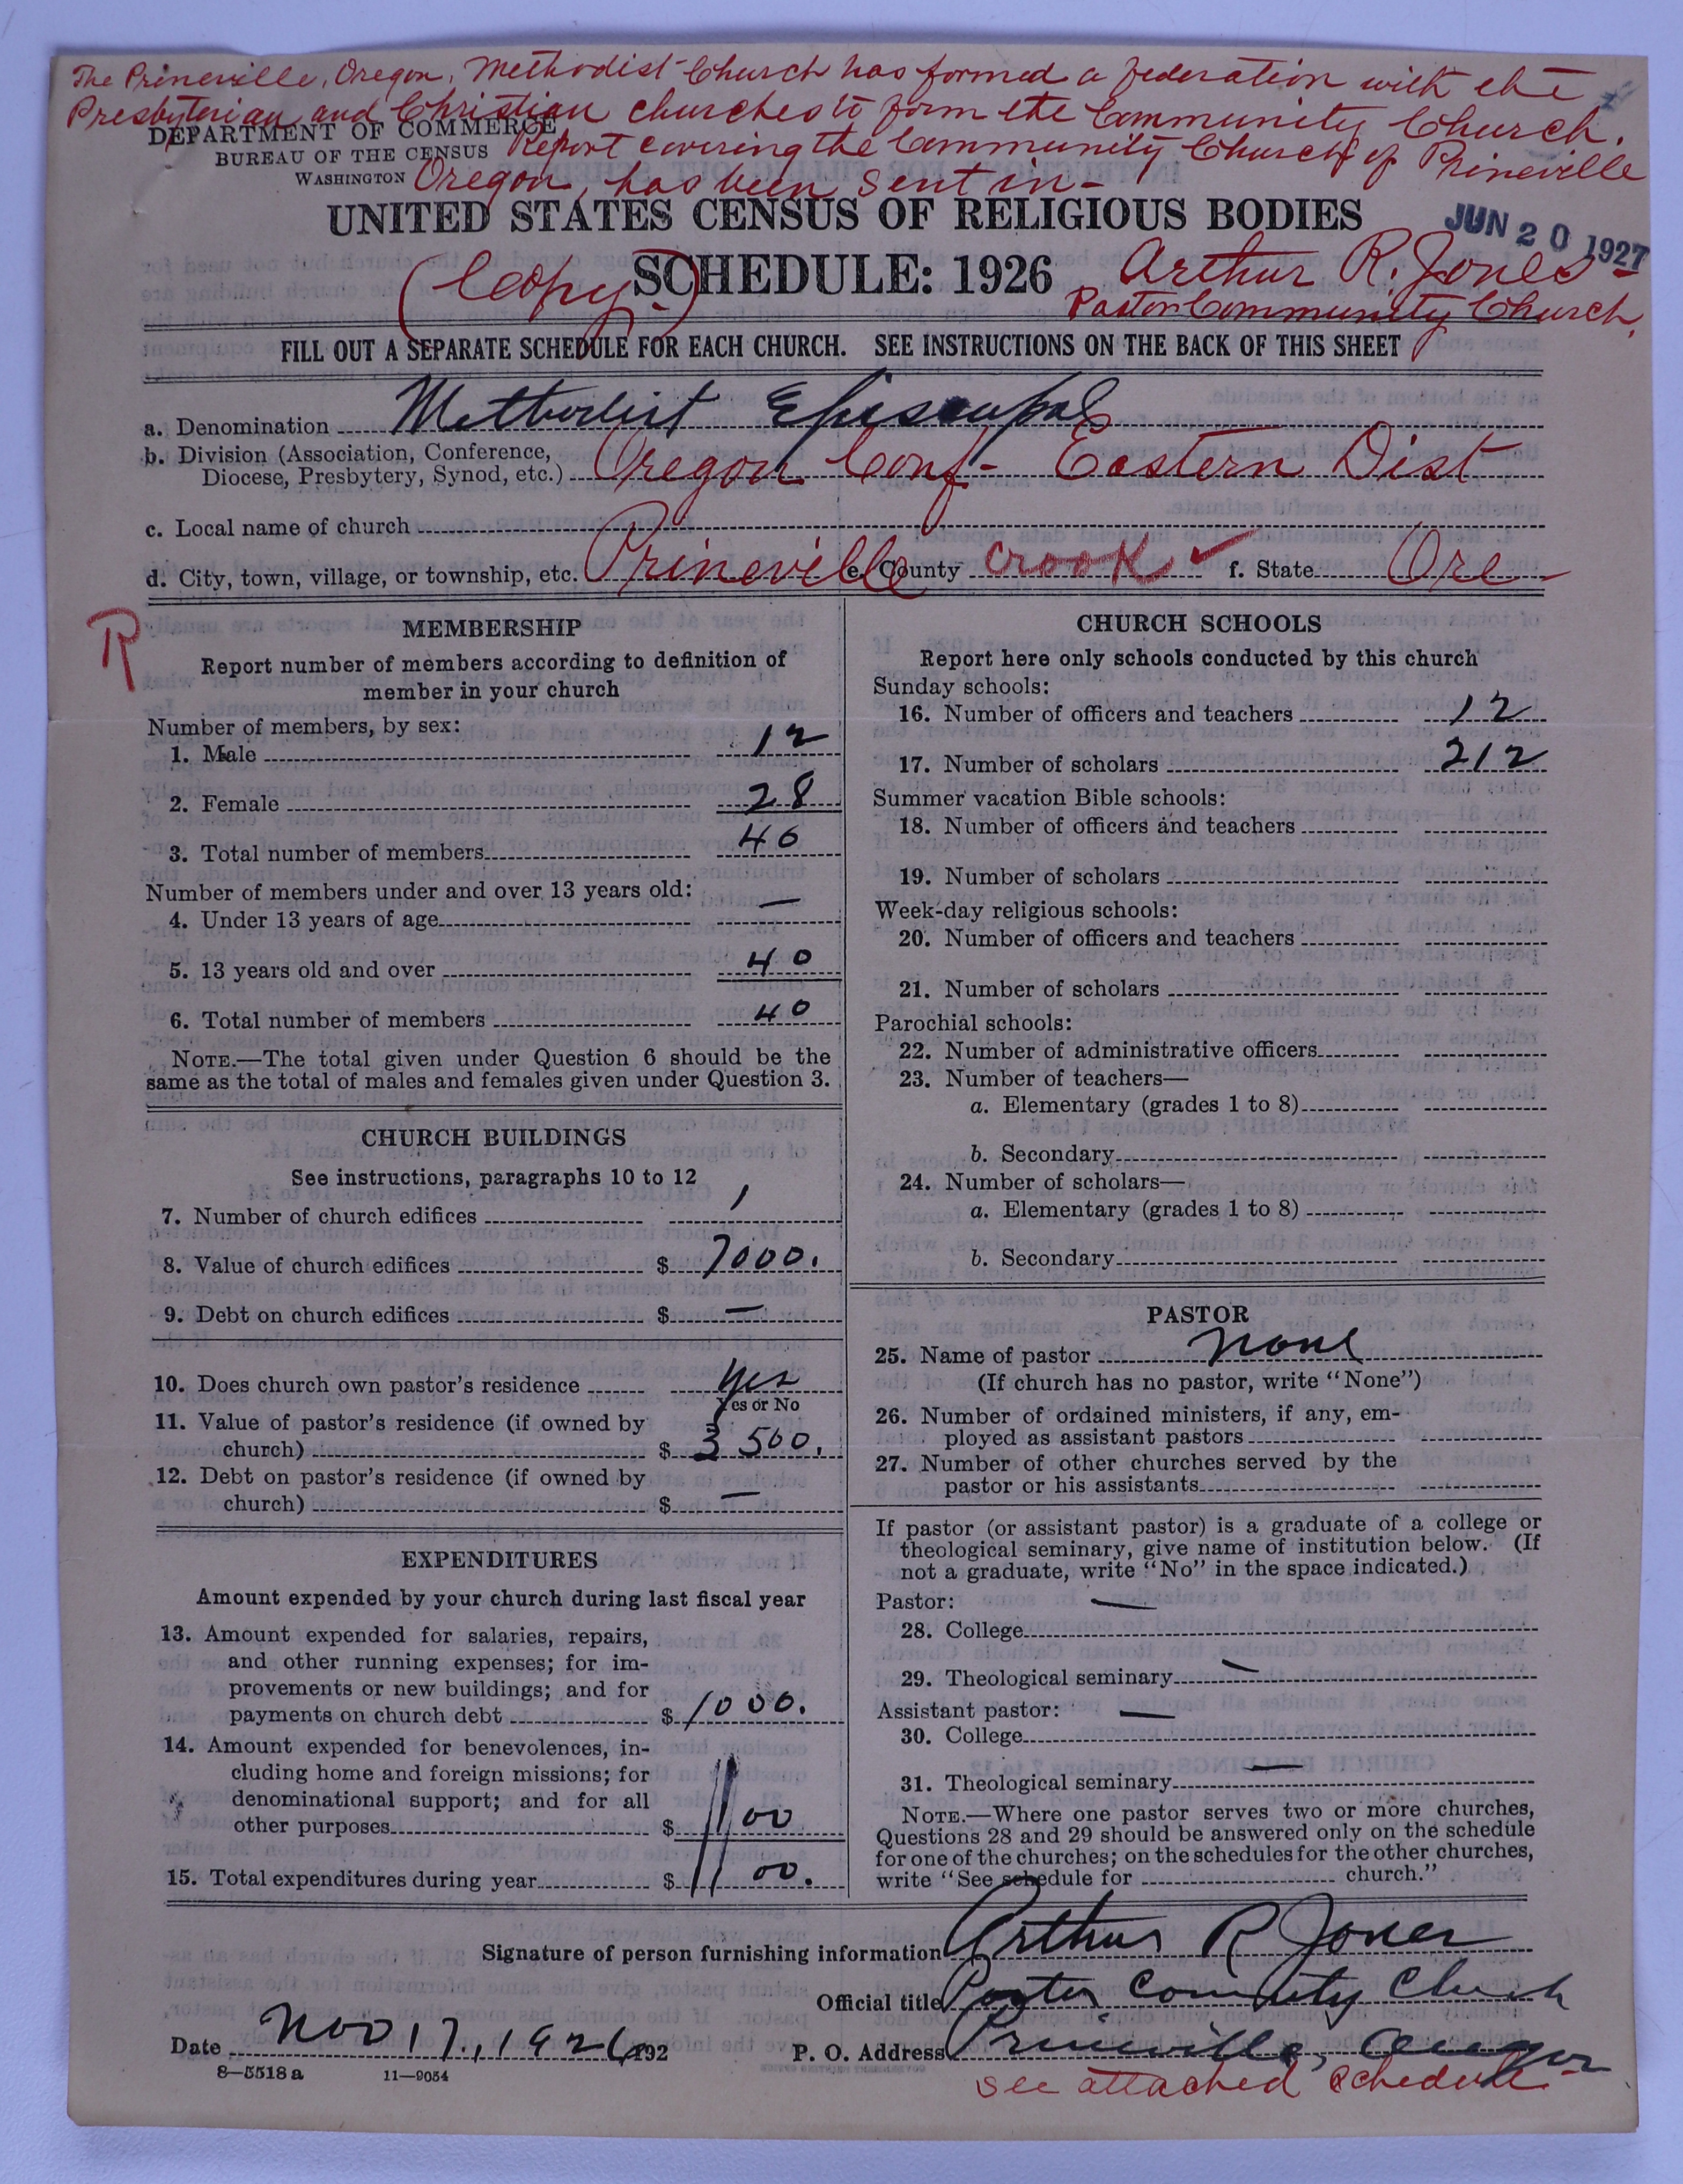 The Prineville, Oregon, Methodist Church has formed a Federation with the
Presbyterian and Christian churches to form the Community Church.
DEPARTMENT OF COMMERCE
BUREAU OF THE CENSUS Report covering the Community Church of Prineville
WASHINGTON Oregon, has been sent in-
UNITED STATES CENSUS OF RELIGIOUS BODIES
JUN 20 1927
(Copy.) SCHEDULE: 1926 Arthur R. Jones-
Pastor Community Church,
FILL OUT A SEPARATE SCHEDULE FOR EACH CHURCH. SEE INSTRUCTIONS ON THE BACK OF THIS SHEET
a. Denomination Methodist Episcopal
b. Division (Association, Conference,
Diocese, Presbytery, Synod, etc.) Oregon Conf- Eastern Dist
c. Local name of church
d. City, town, village, or township, etc. Prineville e. County Crook ✓ f. State Ore
R
MEMBERSHIP
Report number of members according to definition of
member in your church
Number of members, by sex:
1. Male 12
2. Female 28
3. Total number of members 40
Number of members under and over 13 years old:
4. Under 13 years of age —
5. 13 years old and over 40
6. Total number of members 40
NOTE.—The total given under Question 6 should be the
same as the total of males and females given under Question 3.
CHURCH BUILDINGS
See instructions, paragraphs 10 to 12
7. Number of church edifices 1
8. Value of church edifices $ 7000.
9. Debt on church edifices $ —
10. Does church own pastor's residence Yes
Yes or No
11. Value of pastor's residence (if owned by
church) $ 3500.
12. Debt on pastor's residence (if owned by
church) $ —
EXPENDITURES
Amount expended by your church during last fiscal year
13. Amount expended for salaries, repairs,
and other running expenses; for im-
provements or new buildings; and for
payments on church debt $ 1000.
14. Amount expended for benevolences, in-
cluding home and foreign missions; for
denominational support; and for all
other purposes $ 100
15. Total expenditures during year $ 1100.
CHURCH SCHOOLS
Report here only schools conducted by this church
Sunday schools:
16. Number of officers and teachers 12
17. Number of scholars 212
Summer vacation Bible schools:
18. Number of officers and teachers
19. Number of scholars
Week-day religious schools:
20. Number of officers and teachers
21. Number of scholars
Parochial schools:
22. Number of administrative officers
23. Number of teachers—
a. Elementary (grades 1 to 8)
b. Secondary
24. Number of scholars—
a. Elementary (grades 1 to 8)
b. Secondary
PASTOR
25. Name of pastor None
(If church has no pastor, write "None")
26. Number of ordained ministers, if any, em-
ployed as assistant pastors
27. Number of other churches served by the
pastor or his assistants
If pastor (or assistant pastor) is a graduate of a college or
theological seminary, give name of institution below. (If
not a graduate, write "No" in the space indicated.)
Pastor: —
28. College
29. Theological seminary —
Assistant pastor: —
30. College
31. Theological seminary —
NOTE.—Where one pastor serves two or more churches,
Questions 28 and 29 should be answered only on the schedule
for one of the churches; on the schedules for the other churches,
write "See schedule for church."
Signature of person furnishing information Arthur R Jones
Official title Pastor Community Church
Date Nov 17, 1926, 192 P. O. Address Prineville, Oregon
8—5518 a 11—9054
see attached schedule